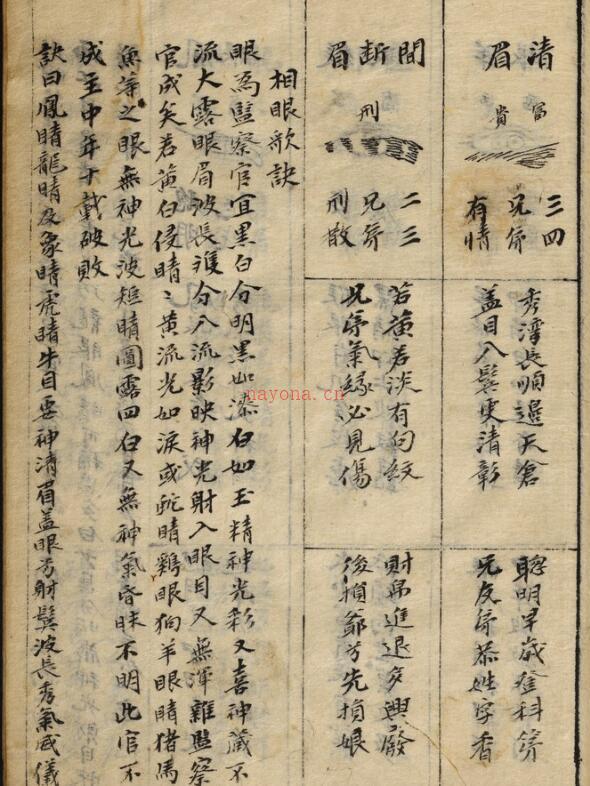 清眉
富
貴
三四
兄弟
有情
秀淨長順過天倉
蓋目入鬢更清彰
聰明早歲登科第
兄友弟恭姓字香
間断眉
刑
二三
兄弟
刑散
若黃若淡有勾紋
兄弟氣緣必見傷
財帛進退多興廢
後損爺兮先損娘
相眼歌訣
眼為監察官宜黑白分明黑如漆白如玉精神光彩又喜神藏不
流大露眼眉波長獲分入流影映神光射入眼目又無渾雜監察
官成矣若黃白侵睛〻黃流光如淚或蛇睛鷄眼狗羊眼睛猪馬
魚等之眼無神光波短睛圓露四白又無神氣昏昧不明此官不
成至中年十載破敗
訣曰鳳睛龍睛及象睛虎睛牛目要神清眉蓋眼兮射鬓波長秀氣威儀
nayona.cn